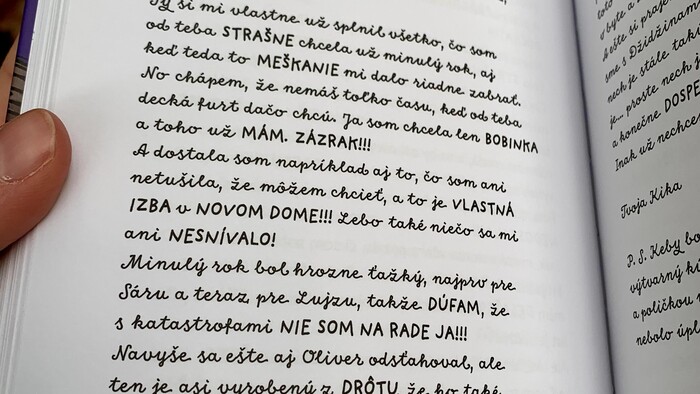 Ty si mi vlastne už splnil všetko, čo som
od teba STRAŠNE chcela už minulý rok, aj
keď teda to MEŠKANIE mi dalo riadne zabrať.
No chápem, že nemáš toľko času, keď od teba
decká furt dačo chcú. Ja som chcela len BOBINKA
a toho už MÁM. ZÁZRAK!!!
A dostala som napríklad aj to, čo som ani
netušila, že môžem chcieť, a to je VLASTNÁ
IZBA v NOVOM DOME!!! Lebo také niečo sa mi
ani NESNÍVALO!
Minulý rok bol hrozne ťažký, najprv pre
Sáru a teraz pre Lujzu, takže DÚFAM, že
s katastrofami NIE SOM NA RADE JA!!!
Navyše sa ešte aj Oliver odsťahoval, ale
ten je asi vyrobený z DRÔTU, že ho také
v byte a
kešte si praj
sme s Džidžinam
nech je stále tak
je... proste nech j
a konečne DOSPE
Inak už nechce
Tvoja Kika
P. S. Keby bo
výtvarný k
a poličkou
nebolo úpl